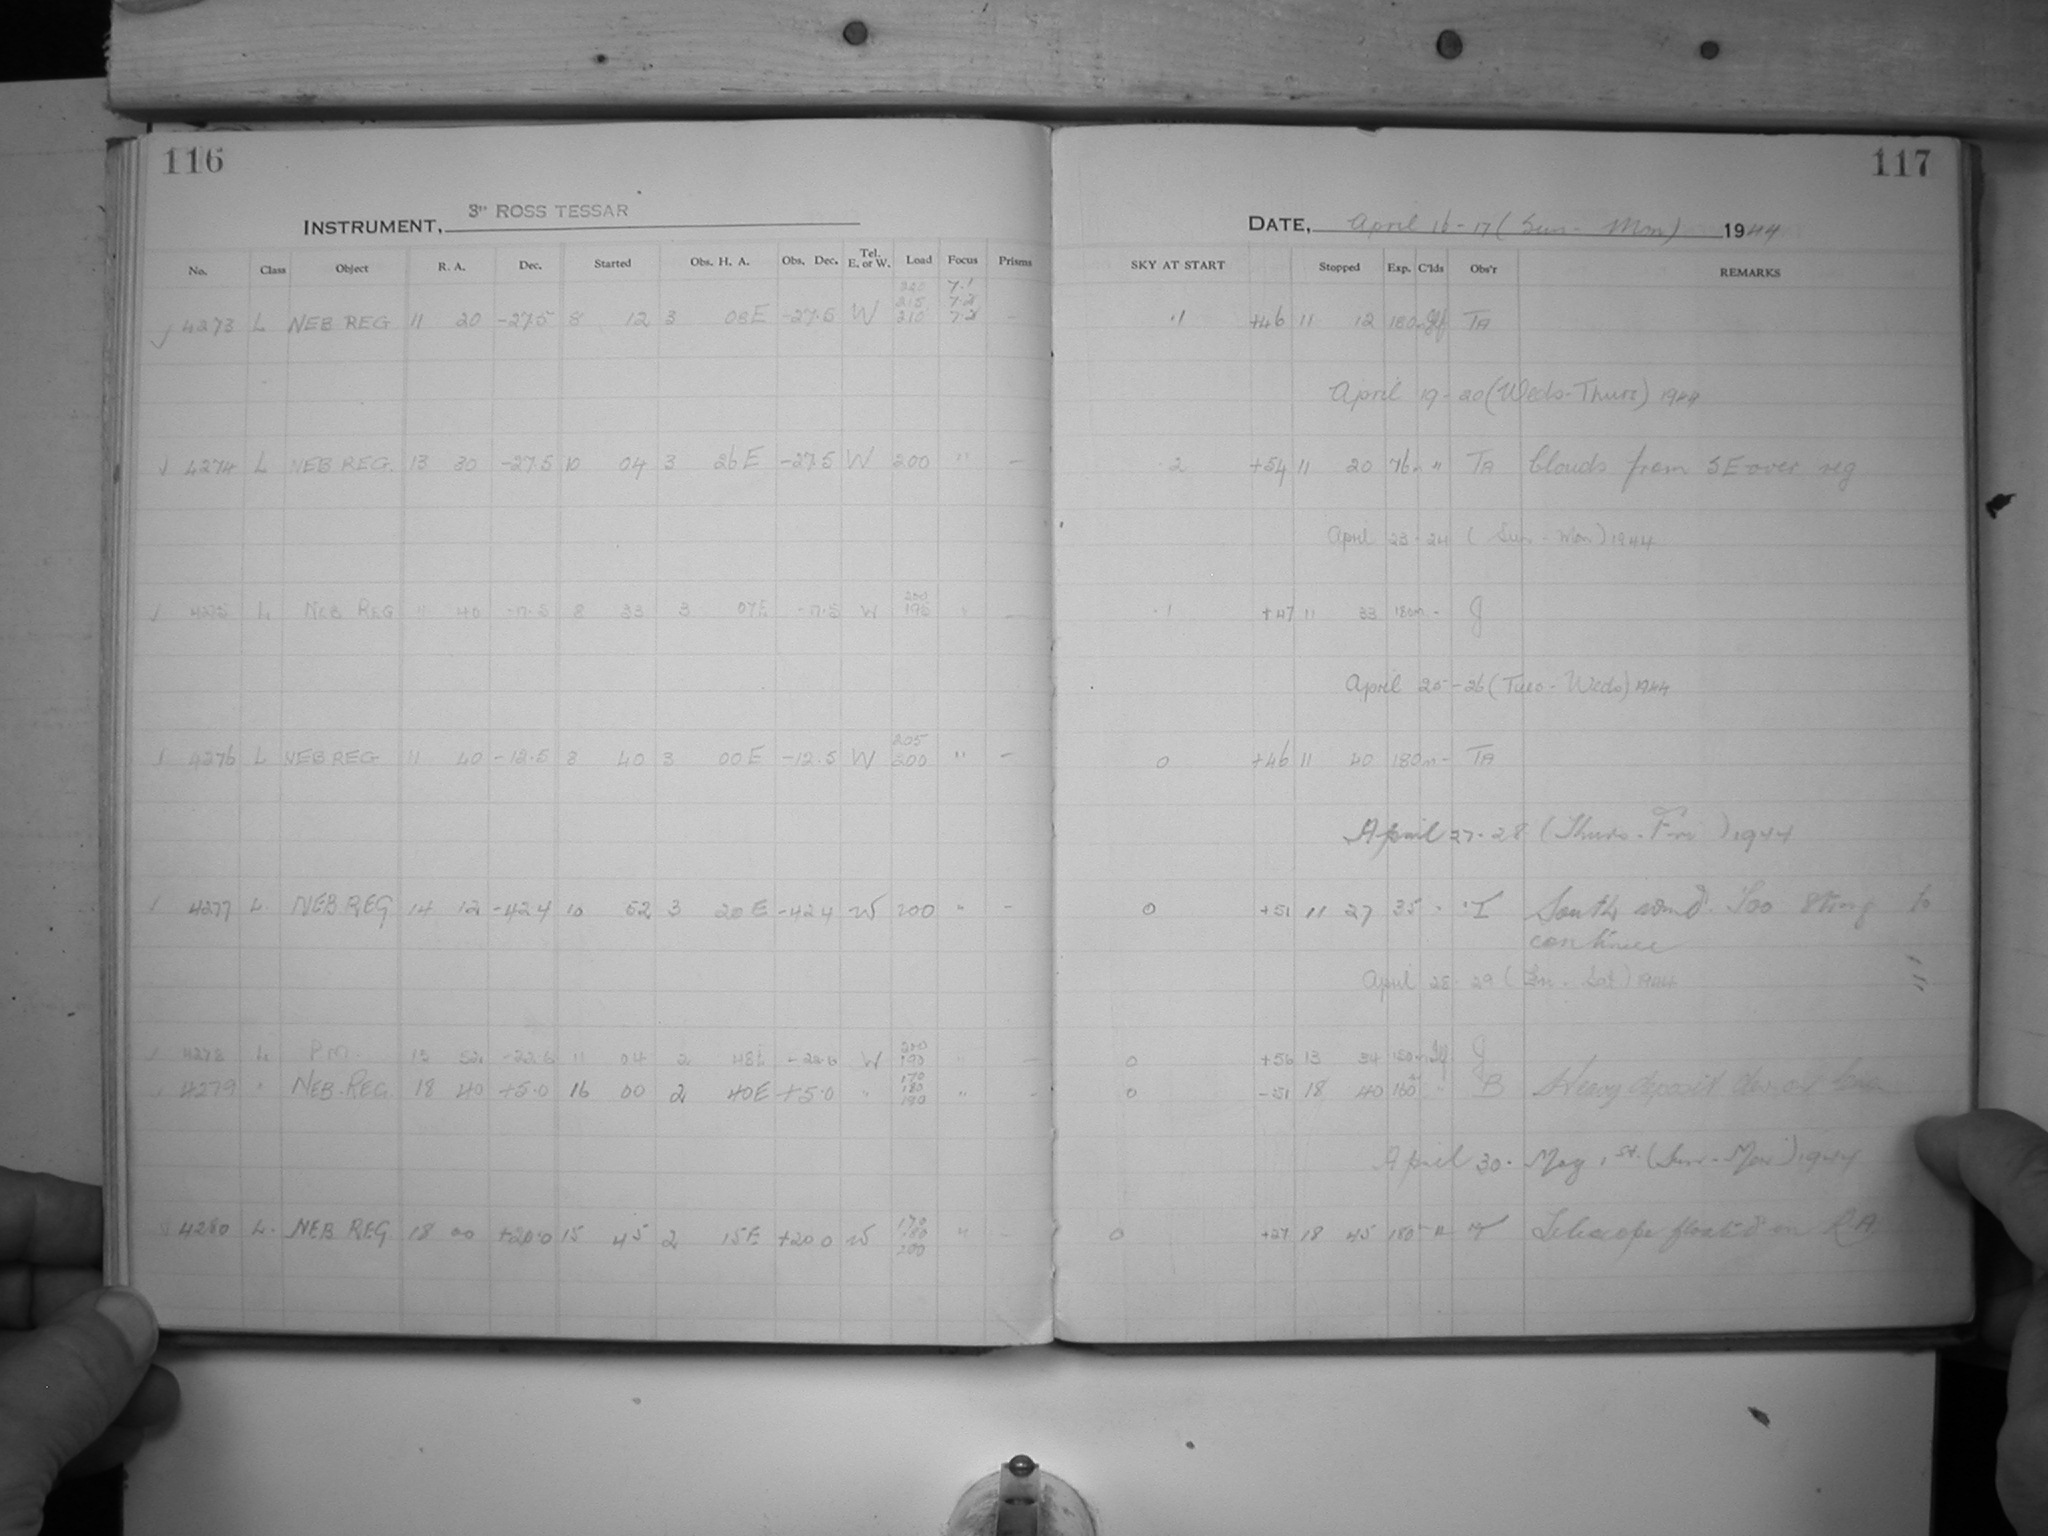 116
INSTRUMENT, 3" ROSS TESSAR
No. Class Object R. A. Dec. Started Obs. H. A. Obs. Dec. Tel. E. or W. Load Focus Prisms
220 7.1
215 7.2
4273 L NEB REG 11 20 -27.5 8 12 3 08E -27.5 W 210 7.2 -
4274 L NEB REG. 13 30 -27.5 10 04 3 26E -27.5 W 200 " -
200
4275 L NEB REG 11 40 -7.5 8 33 3 07E -7.5 W 195 " -
205
4276 L NEB REG 11 40 -12.5 8 40 3 00E -12.5 W 200 " -
4277 L. NEB.REG 14 12 -42.4 10 52 3 20E -42.4 W 200 " -
200
4278 L P.M. 15 52 11 04 2 48E W 190 " -
170
4279 " NEB.REG 18 40 +5.0 16 00 2 40E +5.0 " 180 " -
190
170
4280 L. NEB REG 18 00 +20.0 15 45 2 15E +20.0 W 180 " -
200
117
DATE, April 16-17 (Sun - Mon) 1944
SKY AT START Stopped Exp. C'lds Obs'r REMARKS
.1 +46 11 12 180m TA
April 19-20 (Weds-Thurs) 1944
.2 +54 11 20 76m " TA Clouds from SE over reg
April 23-24 (Sun-Mon) 1944
.1 +47 11 33 180m - J
April 25-26 (Tues-Weds) 1944
0 +46 11 40 180m - TA
April 27-28 (Thurs-Fri) 1944
0 +51 11 27 35 South wind. Too strong to
continue
April 28-29 (Fri-Sat) 1944
0 +56 13 34 150m J
0 -51 18 40 160 " B Heavy deposit dew on lens
April 30-May 1st. (Sun-Mon) 1944
0 +27 18 45 180 " Telescope floated on RA